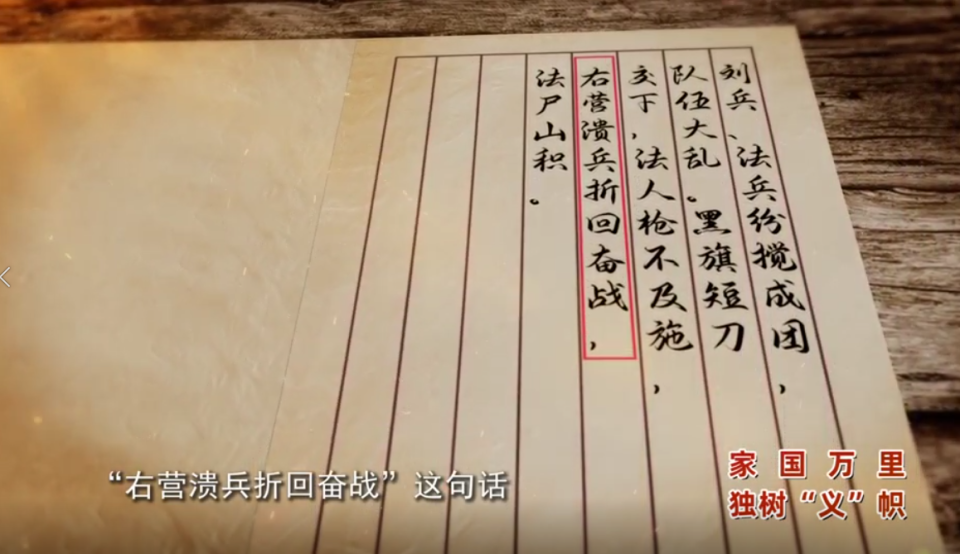 刘兵、法兵纷搅成团，
队伍大乱。黑旗短刀
交下，法人枪不及施，
右营溃兵折回奋战，
法尸山积。
“右营溃兵折回奋战”这句话
家国万里
独树“义”帜